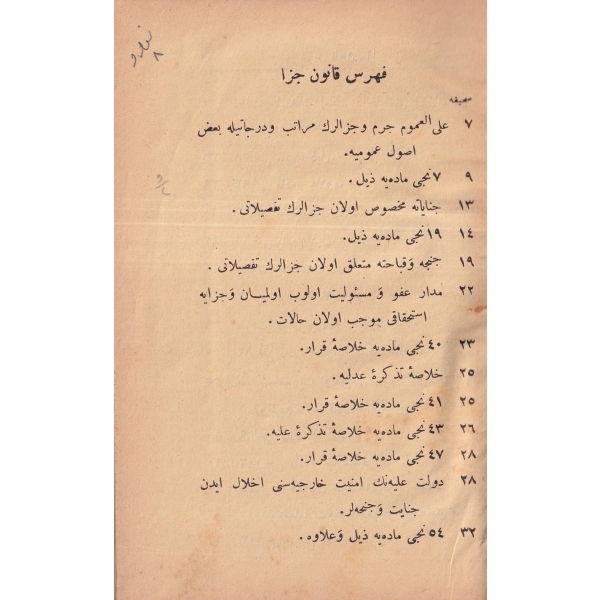 فهرس قانون جزا
صحیفه
٧ علی العموم جرم وجزالرك مراتب ودرجاتیله بعض
اصول عمومیه.
٩ ٧نجی مادەیه ذیل.
١٣ جنایاته مخصوص اولان جزالرك تفصیلاتی.
١٤ ١٩نجی مادەیه ذیل.
١٩ جنحه وقباحته متعلق اولان جزالرك تفصیلاتی.
٢٢ مدار عفو و مسئولیت اولوب اولمیان وجزایه
استحقاقی موجب اولان حالات.
٢٣ ٤٠نجی مادەیه خلاصهٔ قرار.
٢٥ خلاصهٔ تذکرهٔ عدلیه.
٢٥ ٤١نجی مادەیه خلاصهٔ قرار.
٢٦ ٤٣نجی مادەیه خلاصهٔ تذکرهٔ علیه.
٢٨ ٤٧نجی مادەیه خلاصهٔ قرار.
٢٨ دولت علیەنك امنیت خارجیەسنی اخلال ایدن
جنایت وجنحەلر.
٣٢ ٥٤نجی مادەیه ذیل وعلاوه.